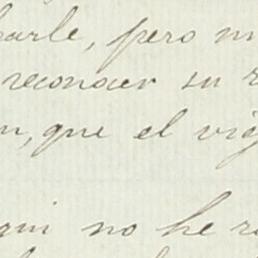 arle, pero m
reconocer su r
n, que el vig
qui no he r